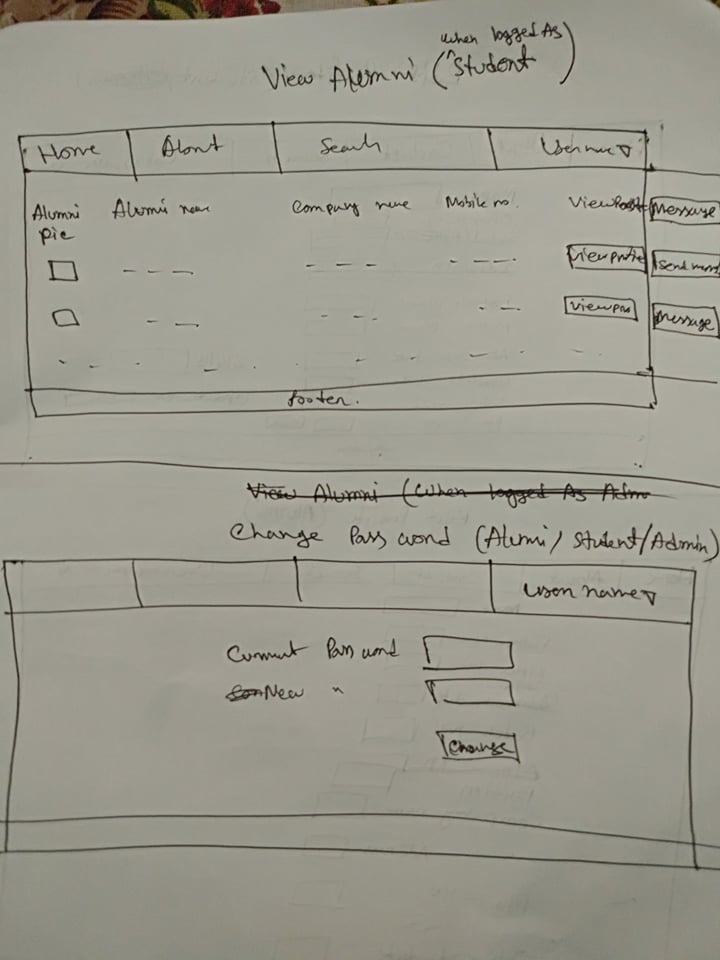 when logged As
View Alumni (^Student)
Home About Search Username ▽
Alumni pic Alumni name Company name Mobile no. View Message
View profile Send
View pro Message
footer.
View Alumni (When logged As Adm
Change Password (Alumni/Student/Admin)
User name ▽
Current Password
New "
Change